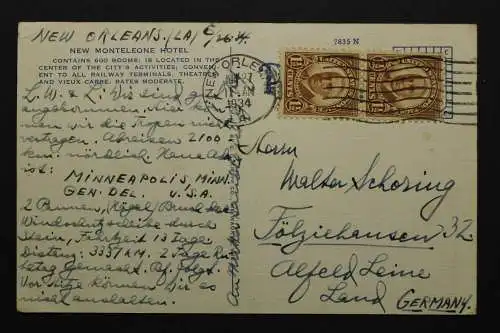 NEW ORLEANS. (LA) 6/26.34.
NEW MONTELEONE HOTEL
CONTAINS 600 ROOMS; IS LOCATED IN THE
CENTER OF THE CITY'S ACTIVITIES; CONVENI-
ENT TO ALL RAILWAY TERMINALS, THEATRES
AND VIEUX CARRE. RATES MODERATE.
L. W. & L! Wir sind
angekommen. Hier
nen wir die Tropen nicht
vertragen. Abreisen 2100
km. nördlich. Neue Adr.
ist:
MINNEAPOLIS, MINN.
GEN. DEL. U.S.A.
2 Pannen, Kugel Bruch der
Windschutzscheibe durch
Stein, Fahrzeit 13 Tage
Distanz: 3337 KM. 2 Tage
gemacht.
können wir es
nicht aushalten.
2635 N
NEW ORLEANS
JUN 27
AM
1934
LA.
Herrn
Walter Schoring
Fölziehausen 32
Alfeld Leine
Land GERMANY.